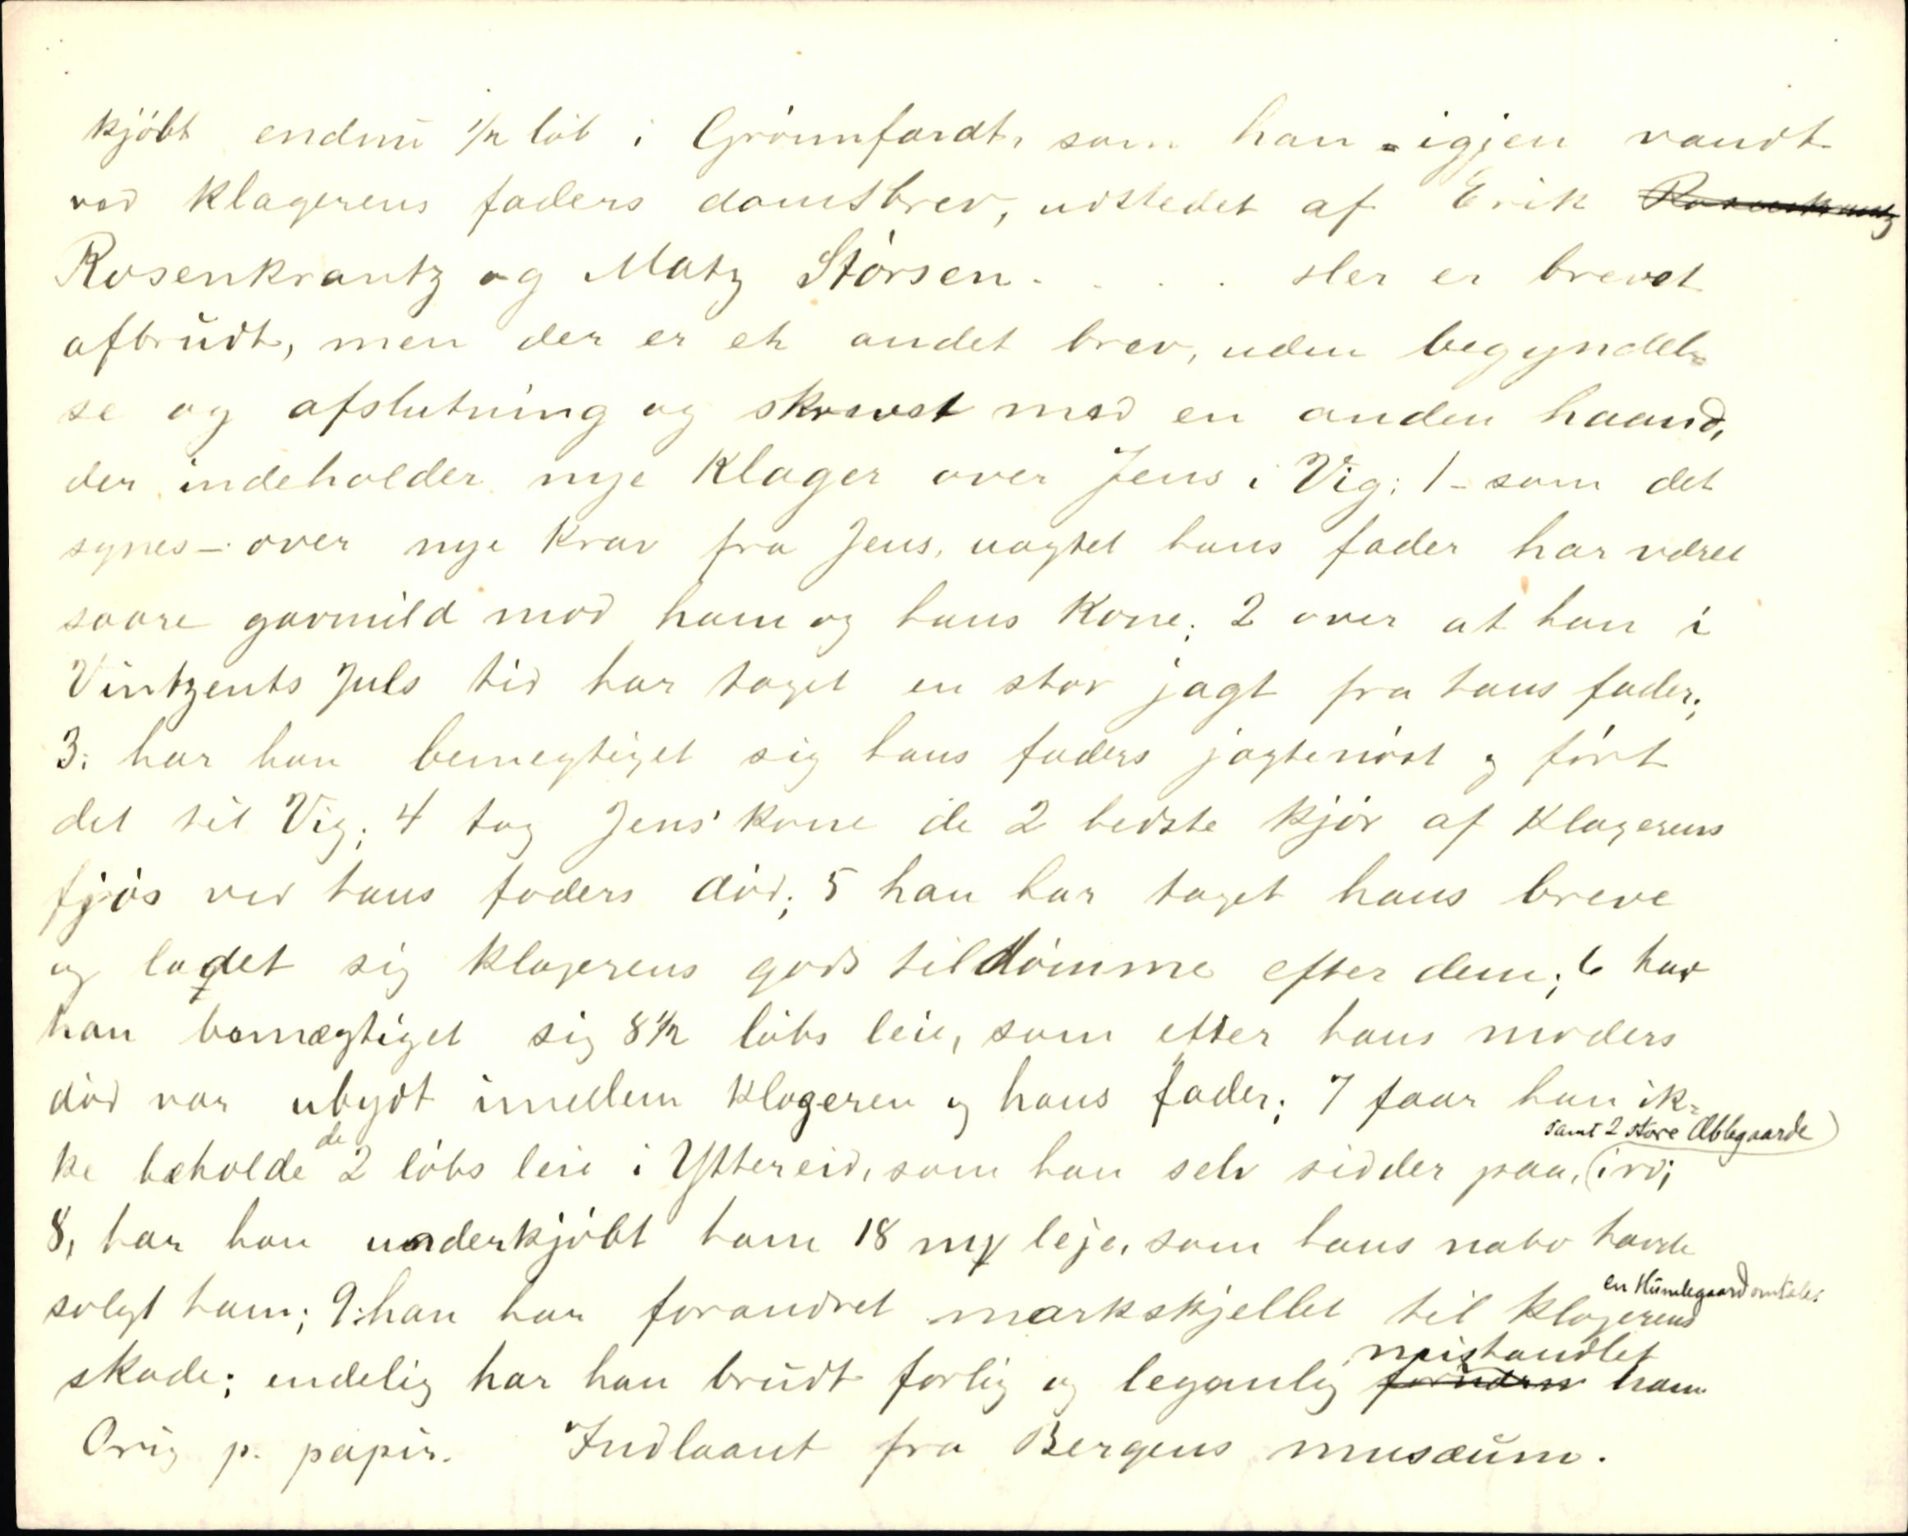 kjöbt endnu 1/2 löb i Grönnfardt, som han igjen vandt
ved klagerens faders domsbrev, udstedet af Erik Rosenkrantz
Rosenkrantz og Matz Störsen. . . . Her er brevet
afbrudt, men der er et andet brev, uden begyndel=
se og afslutning og skrevet med en anden haand,
der indeholder nye klager over Jens i Vig: 1 - som det
synes - over nye krav fra Jens, uagtet hans fader har været
saare gavmild mod ham og hans kone; 2 over at han i
Vintzents Juls tid har taget en stor jagt fra hans fader;
3: har han bemegtiget sig hans faders jagtenöst og fört
det til Vig; 4 tog Jens' kone de 2 bedste kjör af klagerens
fjös ved hans faders död; 5 han har taget hans breve
og ladet sig klagerens gods tildömme efter dem; 6 har
han bemægtiget sig 8 1/2 löbs leie, som efter hans moders
död var ubydt imellem klageren og hans fader; 7 faar han ik=
samt 2 store Æblegaarde
ke beholde de 2 löbs leie i Yttereid, som han selv sidder paa, i ro;
8, har han underkjöbt ham 18 mk leje, som hans nabo havde
en Humlegaard omtales
solgt ham; 9: han har forandret markskjellet til klagerens
skade; endelig har han brudt forlig og legemlig mishandlet ham
Orig p. papir. Indlaant fra Bergens museum.